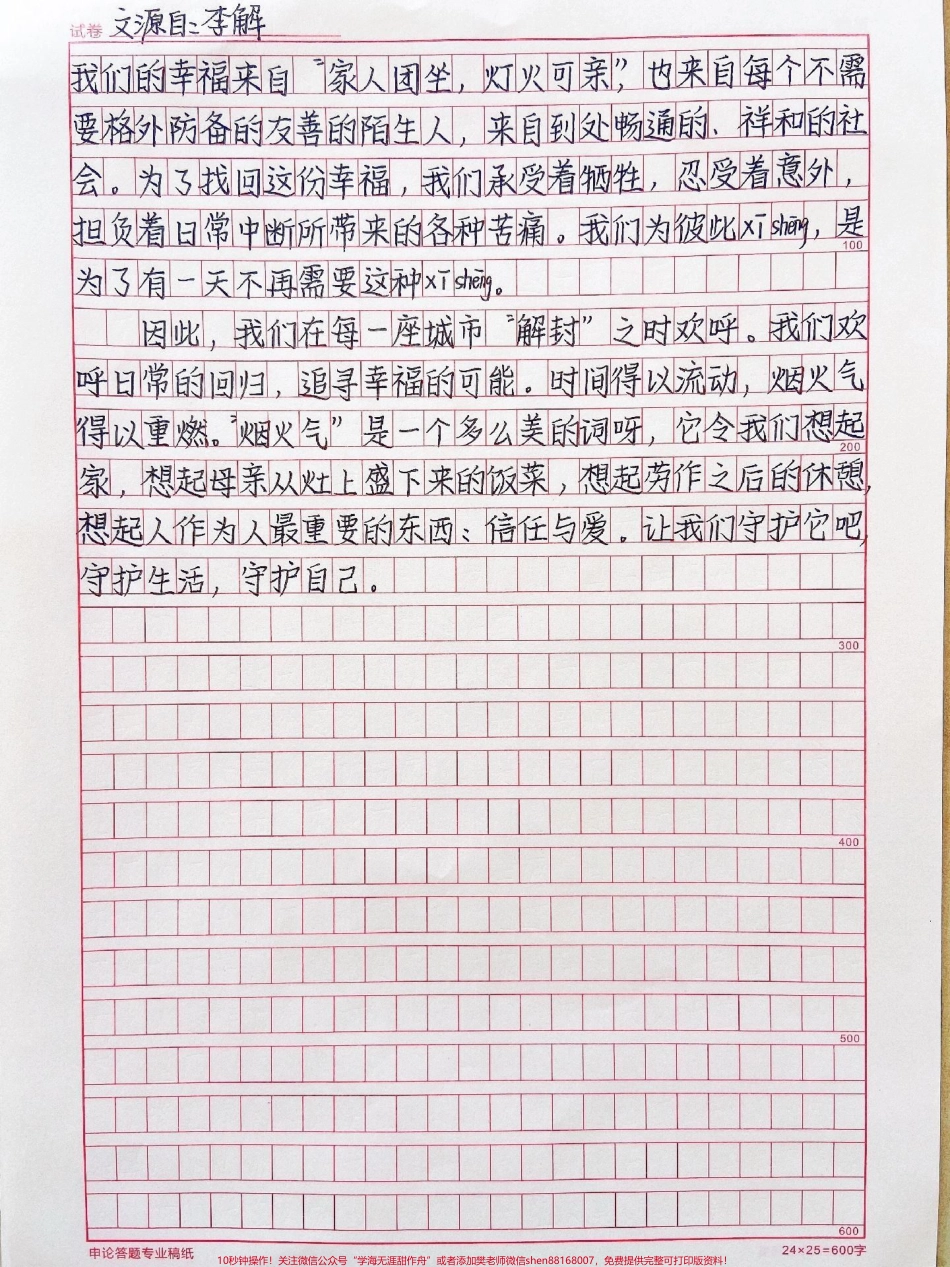 试卷 文源自：李解
我们的幸福来自“家人团坐，灯火可亲”，也来自每个不需
要格外防备的友善的陌生人，来自到处畅通的、祥和的社
会。为了找回这份幸福，我们承受着牺牲，忍受着意外，
担负着日常中断所带来的各种苦痛。我们为彼此xī shēng，是
100
为了有一天不再需要这种xī shēng。
因此，我们在每一座城市“解封”之时欢呼。我们欢
呼日常的回归，追寻幸福的可能。时间得以流动，烟火气
得以重燃。“烟火气”是一个多么美的词呀，它令我们想起
200
家，想起母亲从灶上盛下来的饭菜，想起劳作之后的休憩，
想起人作为人最重要的东西：信任与爱。让我们守护它吧，
守护生活，守护自己。
300
400
500
600
申论答题专业稿纸 24×25=600字
10秒钟操作！关注微信公众号“学海无涯甜作舟”或者添加樊老师微信shen88168007，免费提供完整可打印版资料！